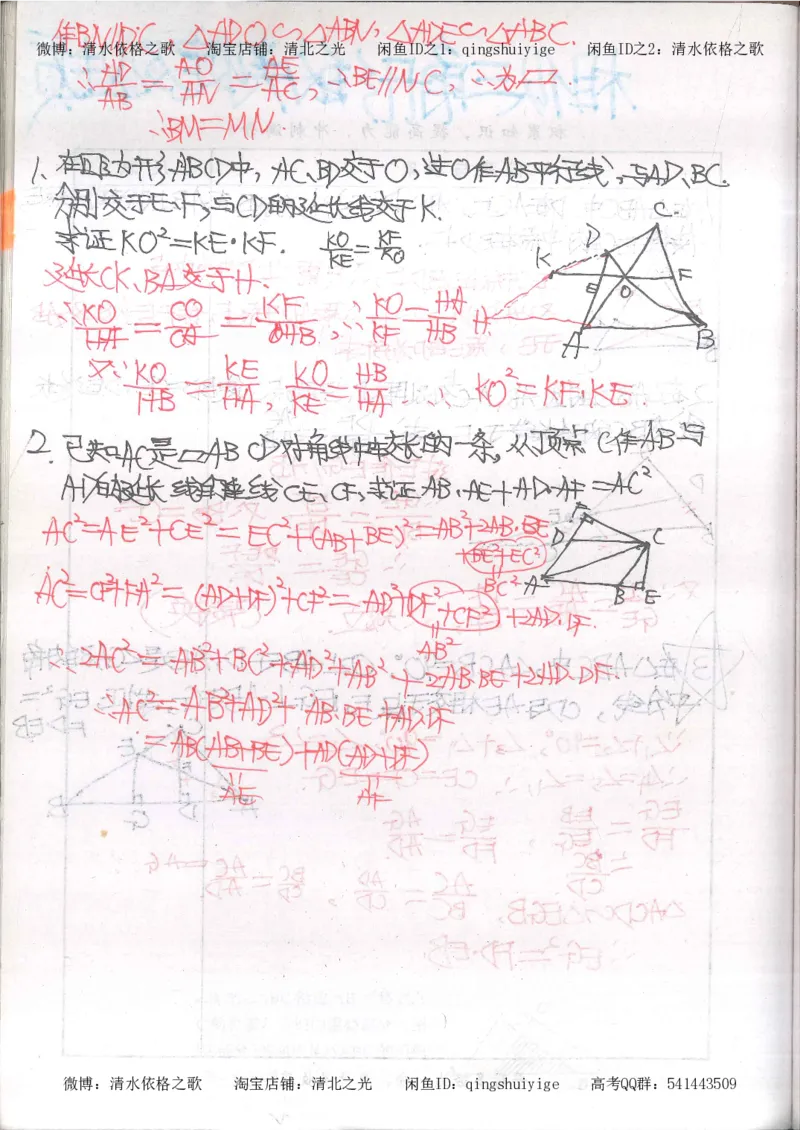 作BN∥DC, △ADO∽△ABN, △ADE∽△ABC.
微博：清水依格之歌 淘宝店铺：清北之光 闲鱼ID之1：qingshuiyige 闲鱼ID之2：清水依格之歌
∴AD/AB=AO/AN=AE/AC, ∵BE∥NC, ∴为▱.
∴BM=MN
1. 在四边形ABCD中, AC、BD交于O, 过O作AB平行线, 与AD、BC
分别交于E、F, 与CD的延长线交于K.
求证KO²=KE·KF. KO/KE=KF/KO
延长CK、BA交于H.
∵KO/HA=CO/CA=KF/HB, ∴KO/KF=HA/HB
又∵KO/HB=KE/HA, KO/KE=HB/HA ∴KO²=KF·KE.
C D K E O F H A B
2. 已知AC是▱ABCD对角线中较长的一条, 从顶点C作AB与
AD的延长线的垂线CE、CF, 求证AB·AE+AD·AF=AC²
AC²=AE²+CE²=EC²+(AB+BE)²=AB²+2AB·BE
+BE²+EC²
BC²
F D C A B E
AC²=CF²+FA²=(AD+DF)²+CF²=AD²+DF²+CF²+2AD·DF.
AB²
∵2AC²=AB²+BC²+AD²+AB²+2AB·BE+2AD·DF.
∴AC²=AB²+AD²+AB·BE+AD·DF
=AB(AB+BE)+AD(AD+DF)
AE AF
微博：清水依格之歌 淘宝店铺：清北之光 闲鱼ID：qingshuiyige 高考QQ群：541443509